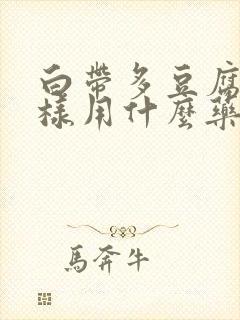 白帶多豆腐
樣用什麼藥
馬奔牛